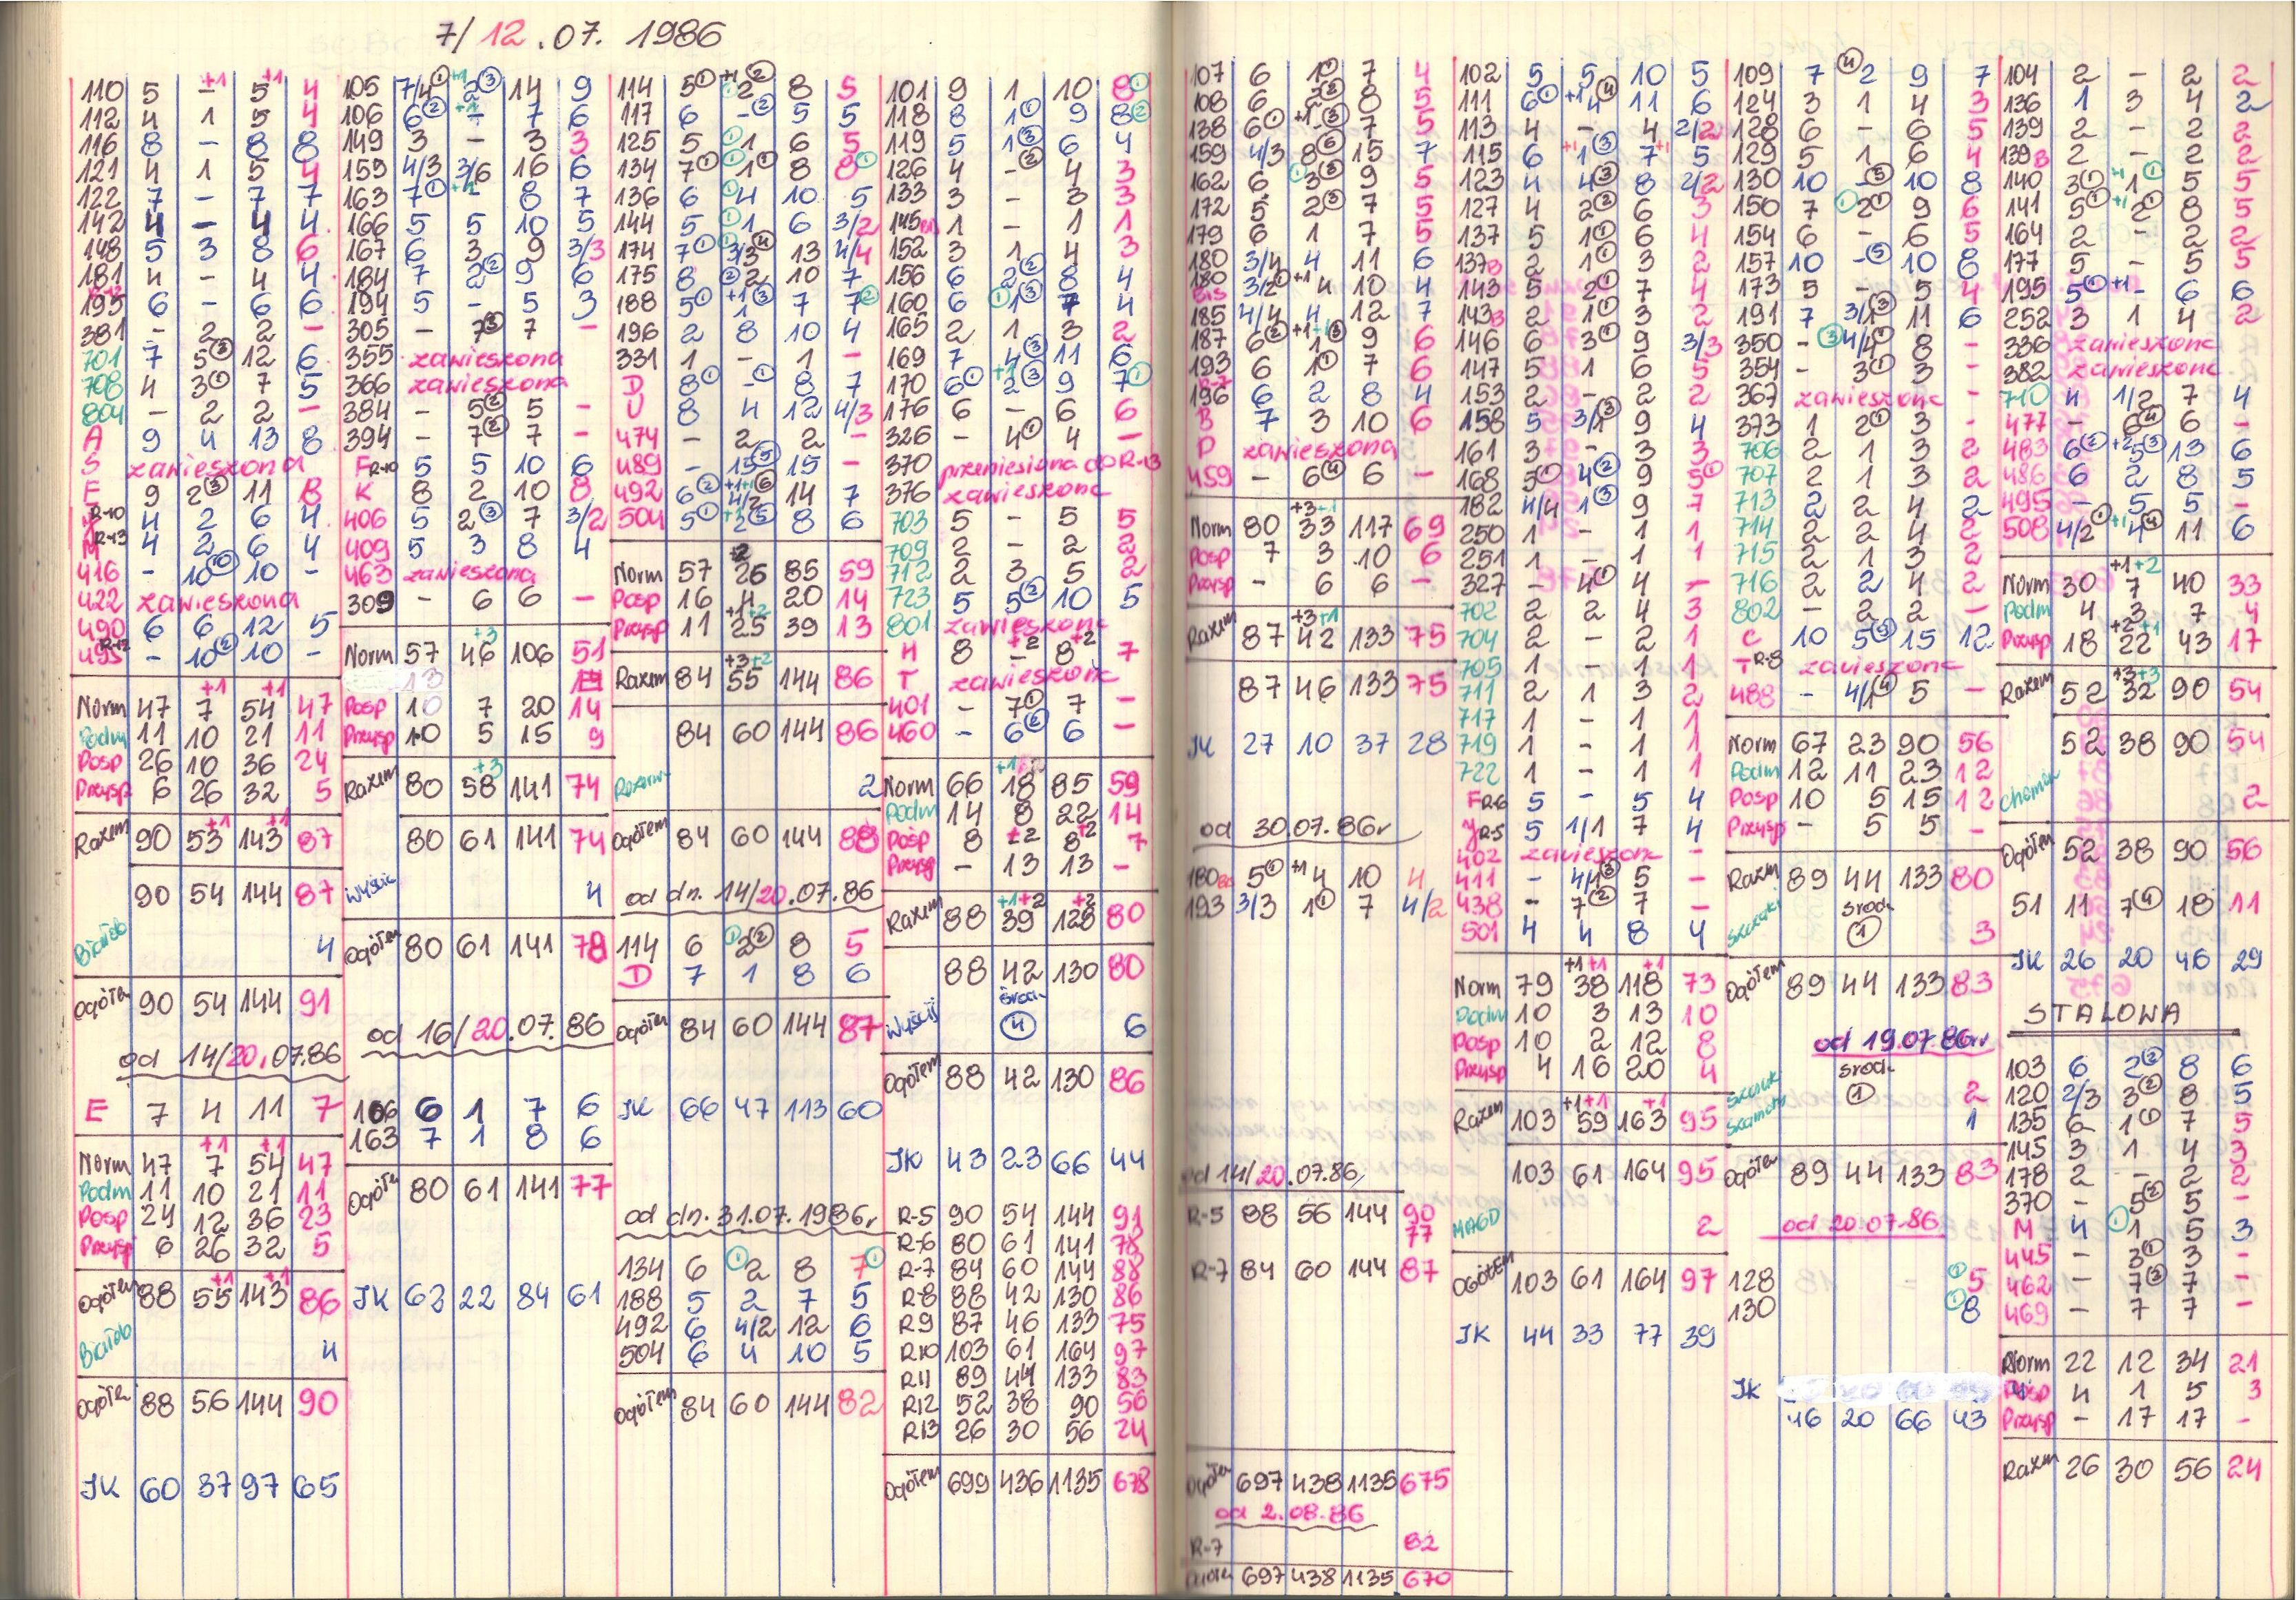 7/12.07.1986
110 5 - +1 5 +1 4
112 4 1 5 4
116 8 - 8 8
121 4 1 5 4
122 7 - 7 7
142 4 - 4 4
148 5 3 8 6
181 4 - 4 4
195 R-12 6 - 6 6
381 - 2 2 -
701 7 5③ 12 6
708 4 3① 7 5
804 - 2 2 -
A 9 4 13 8
S zawieszona
E 9 2③ 11 8
R-10 4 2 6 4
M R-13 4 2 6 4
416 - 10⑩ 10 -
422 zawieszona
490 6 6 12 5
495 R-12 - 10② 10 -
Norm 47 7 +1 54 +1 47
Podm 11 10 21 11
Posp 26 10 36 24
Przysp 6 26 32 5
Razem 90 53 +1 143 +1 87
90 54 144 87
4
Ogółem 90 54 144 91
od 14/20.07.86
E 7 4 11 7
Norm 47 7 +1 54 +1 47
Podm 11 10 21 11
Posp 24 12 36 23
Przysp 6 26 32 5
Ogółem 88 55 +1 143 +1 86
4
Ogółem 88 56 144 90
JK 60 37 97 65
105 7/4① +1 2③ 14 9
106 6② +1 - 7 6
149 3 - 3 3
159 4/3 3/6 16 6
163 7① +1 - 8 7
166 5 5 10 5
167 6 3 9 3/3
184 7 2② 9 6
194 5 - 5 3
305 - 7③ 7 -
355 zawieszona
366 zawieszona
384 - 5② 5 -
394 - 7② 7 -
F R-10 5 5 10 6
K 8 2 10 8
406 5 2③ 7 3/2
409 5 3 8 4
463 zawieszona
309 - 6 6 -
Norm 57 46 +3 106 51
Posp 10 7 20 14
Przysp 10 5 15 9
Razem 80 58 +3 141 74
80 61 141 74
Wyścig 4
Ogółem 80 61 141 78
od 16/20.07.86
106 6 1 7 6
163 7 1 8 6
Ogółem 80 61 141 77
JK 62 22 84 61
114 5① +1 2② 8 5
117 6 -② 5 5
125 5 ①1 6 5
134 7① ①1① 8 8①
136 6 ①4 10 5
144 5 ①1 6 3/2
174 7① ①3/3④ 13 4/4
175 8 ②2 10 7
188 5① +1 1③ 7 7②
196 2 8 10 4
331 1 - 1 -
D 8① -① 8 7
U 8 4 12 4/3
474 - 2 2 -
489 - 15⑤ 15 -
492 6② +1+1 4/2⑥ 14 7
504 5① +1 2⑤ 8 6
Norm 57 26 +2 85 59
Posp 16 4 20 14
Przysp 11 25 +1+2 39 13
Razem 84 55 +3+2 144 86
84 60 144 86
2
Ogółem 84 60 144 88
od dn. 14/20.07.86
114 6 ①2② 8 5
D 7 1 8 6
Ogółem 84 60 144 87
JK 66 47 113 60
od dn. 31.07.1986r
134 6 ①2 8 7①
188 5 2 7 5
492 6 4/2 12 6
504 6 4 10 5
Ogółem 84 60 144 82
101 9 1 10 8①
118 8 1① 9 8②
119 5 1③ 6 4
126 4 -② 4 3
133 3 - 3 3
145 Bis 1 - 1 1
152 3 1 4 3
156 6 2② 8 4
160 6 ①1③ 7 4
165 2 1 3 2
169 7 4③ 11 6
170 6① +1 2③ 9 7①
176 6 - 6 6
326 - 4① 4 -
370 przeniesiona do R-13
376 zawieszona
703 5 - 5 5
709 2 - 2 2
712 2 3 5 2
723 5 5② 10 5
801 zawieszona
H 8 - +2 8 +2 7
T zawieszona
401 - 7① 7 -
460 - 6② 6 -
Norm 66 18 +1 85 59
Podm 14 8 22 14
Posp 8 - +2 8 +2 7
Przysp - 13 13 -
Razem 88 39 +1+2 128 +2 80
88 42 130 80
środ.
Wyścig ④ 6
Ogółem 88 42 130 86
JK 43 23 66 44
R-5 90 54 144 91
R-6 80 61 141 78
R-7 84 60 144 88
R-8 88 42 130 86
R9 87 46 133 75
R10 103 61 164 97
R11 89 44 133 83
R12 52 38 90 56
R13 26 30 56 24
Ogółem 699 436 1135 678
107 6 1① 7 4
108 6 2② 8 5
138 6① +1 ③ 7 5
159 4/3 8⑥ 15 7
162 6 ①3③ 9 5
172 5 2③ 7 5
179 6 1 7 5
180 3/4 4 11 6
180 Bis 3/2① +1 4 10 4
185 4/4 4 12 7
187 6② +1+1 1③ 9 6
193 6 1① 7 6
196 R-7 6 2 8 4
B 7 3 10 6
P zawieszona
459 - 6④ 6 -
Norm 80 33 +3+1 117 69
Posp 7 3 10 6
Przysp - 6 6 -
Razem 87 42 +3+1 133 75
87 46 133 75
JK 27 10 37 28
od 30.07.86r
180 Bis 5① +1 4 10 4
193 3/3 1① 7 4/2
od 14/20.07.86
R-5 88 56 144 90
77
R-7 84 60 144 87
Ogółem 697 438 1135 675
od 2.08.86
R-7 82
Ogółem 697 438 1135 670
102 5 5 10 5
111 6① +1 4④ 11 6
113 4 - 4 2/2
115 6 +1 1③ 7 +1 5
123 4 4③ 8 2/2
127 4 2② 6 3
137 5 1① 6 4
137B 2 1① 3 2
143 5 2① 7 4
143B 2 1① 3 2
146 6 3① 9 3/3
147 5 1 6 5
153 2 - 2 2
158 5 3/1③ 9 4
161 3 - 3 3
168 5① 4② 9 5①
182 4/4 1③ 9 7
250 1 - 1 1
251 1 - 1 1
327 - 4① 4 -
702 2 2 4 3
704 2 - 2 1
705 1 - 1 1
711 2 1 3 2
717 1 - 1 1
719 1 - 1 1
722 1 - 1 1
F R-6 5 - 5 4
Y R-5 5 1/1 7 4
402 zawieszon -
411 - 4/1③ 5 -
438 - 7② 7 -
501 4 4 8 4
Norm 79 38 +1+1 118 +1 73
Podm 10 3 13 10
Posp 10 2 12 8
Przysp 4 16 20 4
Razem 103 59 +1+1 163 +1 95
103 61 164 95
MAGD 2
OGÓŁEM 103 61 164 97
JK 44 33 77 39
109 7 ④2 9 7
124 3 1 4 3
128 6 - 6 5
129 5 1 6 4
130 10 -③ 10 8
150 7 ①2① 9 6
154 6 - 6 5
157 10 -⑤ 10 8
173 5 - 5 4
191 7 3/1③ 11 6
350 - ③4/4① 8 -
354 - 3① 3 -
367 zawieszona -
373 1 2① 3 -
706 2 1 3 2
707 2 1 3 2
713 2 2 4 2
714 2 2 4 2
715 2 1 3 2
716 2 2 4 2
802 - 2 2 -
C 10 5⑤ 15 12
T R-8 zawieszona
488 - 4/1④ 5 -
Norm 67 23 90 56
Podm 12 11 23 12
Posp 10 5 15 12
Przysp - 5 5 -
Razem 89 44 133 80
środ.
① 3
Ogółem 89 44 133 83
od 19.07.86r
środ.
① 2
1
Ogółem 89 44 133 83
od 20.07.86
128 ①5
130 ①8
JK
46 20 66 43
104 2 - 2 2
136 1 3 4 2
139 2 - 2 2
139B 2 - 2 2
140 3① +1 1① 5 5
141 5① +1 2① 8 5
164 2 - 2 2
177 5 - 5 5
195 5① +1 - 6 6
252 3 1 4 2
336 zawieszona
382 zawieszona
710 4 1/2 7 4
477 - 6④ 6 -
483 6② +2 5③ 13 6
486 6 2 8 5
495 - 5 5 -
508 4/2① +1 4④ 11 6
Norm 30 7 +1+2 40 33
Podm 4 3 7 4
Przysp 18 22 +2+1 43 17
Razem 52 32 +3+3 90 54
52 38 90 54
2
Ogółem 52 38 90 56
51 11 7④ 18 11
JK 26 20 46 29
STALOWA
103 6 2② 8 6
120 2/3 3② 8 5
135 6 1① 7 5
145 3 1 4 3
178 2 - 2 2
370 - 5② 5 -
M 4 ①1 5 3
445 - 3① 3 -
462 - 7③ 7 -
469 - 7 7 -
Norm 22 12 34 21
Posp 4 1 5 3
Przysp - 17 17 -
Razem 26 30 56 24